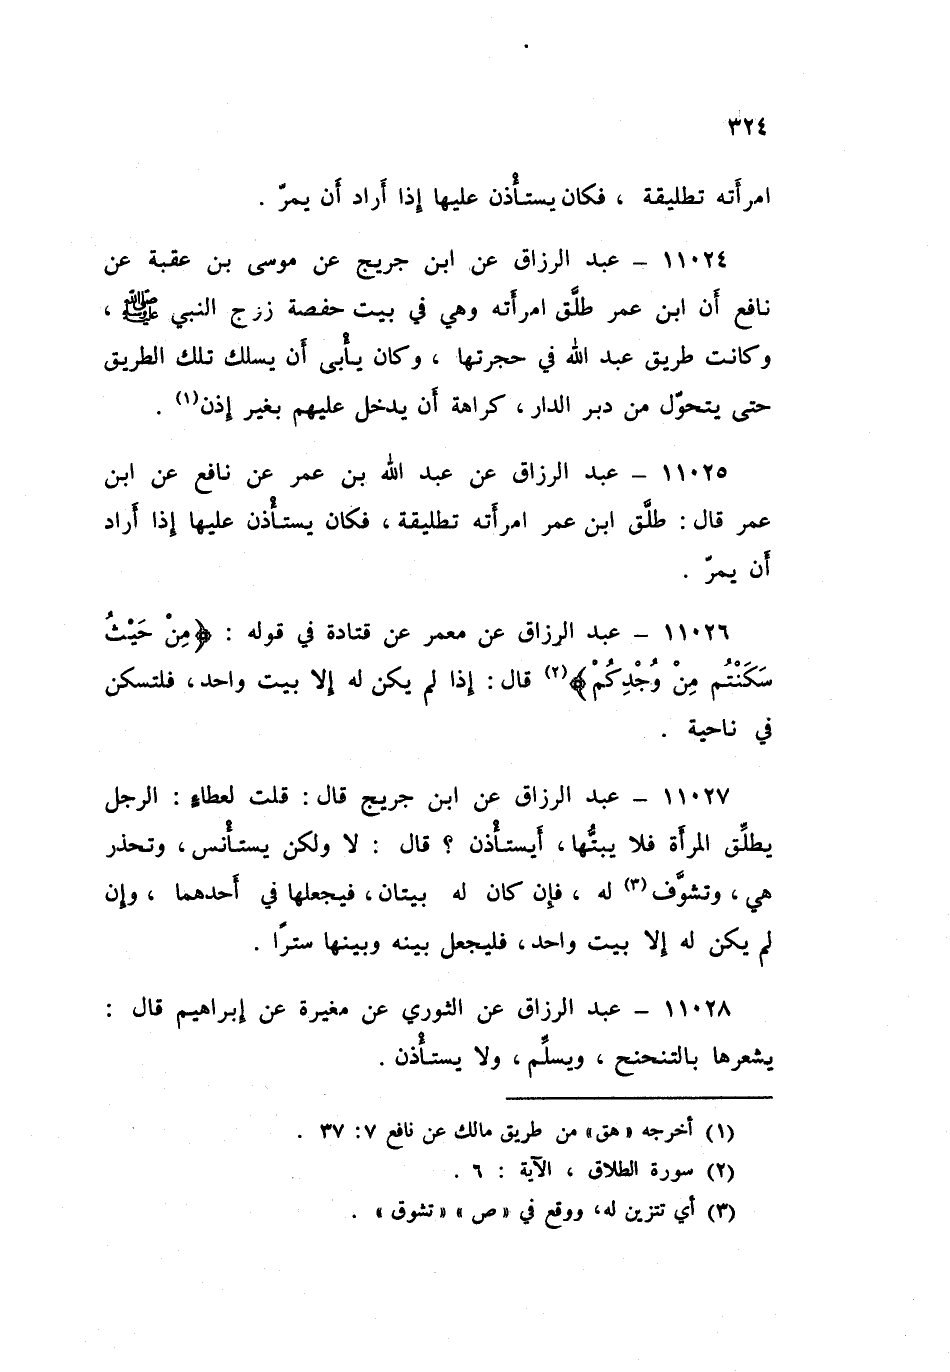 ٣٢٤
امرأته تطليقة ، فكان يستأْذن عليها إذا أَراد أَن يمرّ .
١١٠٢٤ – عبد الرزاق عن ابن جريج عن موسى بن عقبة عن
نافع أَن ابن عمر طلَّق امرأَته وهي في بيت حفصة زرج النبي ﷺ ،
وكانت طريق عبد الله في حجرتها ، وكان يأْبى أَن يسلك تلك الطريق
حتى يتحوّل من دبر الدار ، كراهة أَن يدخل عليهم بغير إذن(١) .
١١٠٢٥ – عبد الرزاق عن عبد الله بن عمر عن نافع عن ابن
عمر قال : طلَّق ابن عمر امرأَته تطليقة ، فكان يستأْذن عليها إذا أَراد
أَن يمرّ .
١١٠٢٦ – عبد الرزاق عن معمر عن قتادة في قوله : ﴿مِنْ حَيْثُ
سَكَنْتُم مِنْ وُجْدِكُمْ﴾(٢) قال : إذا لم يكن له إلا بيت واحد ، فلتسكن
في ناحية .
١١٠٢٧ – عبد الرزاق عن ابن جريج قال : قلت لعطاءٍ : الرجل
يطلِّق المرأَة فلا يبتُّها ، أَيستأْذن ؟ قال : لا ولكن يستأْنس ، وتحذر
هي ، وتشوَّف(٣) له ، فإن كان له بيتان ، فيجعلها في أَحدهما ، وإن
لم يكن له إلا بيت واحد ، فليجعل بينه وبينها سترًا .
١١٠٢٨ – عبد الرزاق عن الثوري عن مغيرة عن إبراهيم قال :
يشعرها بالتنحنح ، ويسلِّم ، ولا يستأْذن .
(١) أخرجه «هق» من طريق مالك عن نافع ٧: ٣٧ .
(٢) سورة الطلاق ، الآية : ٦ .
(٣) أي تتزين له، ووقع في «ص» «تشوق» .